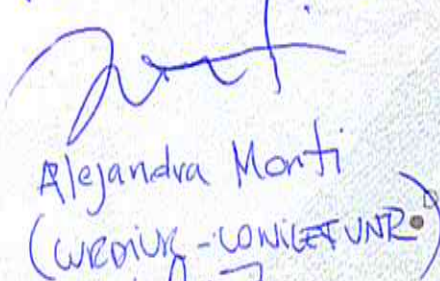 Alejandra Monti
(CURDIUR - CONICET UNR)